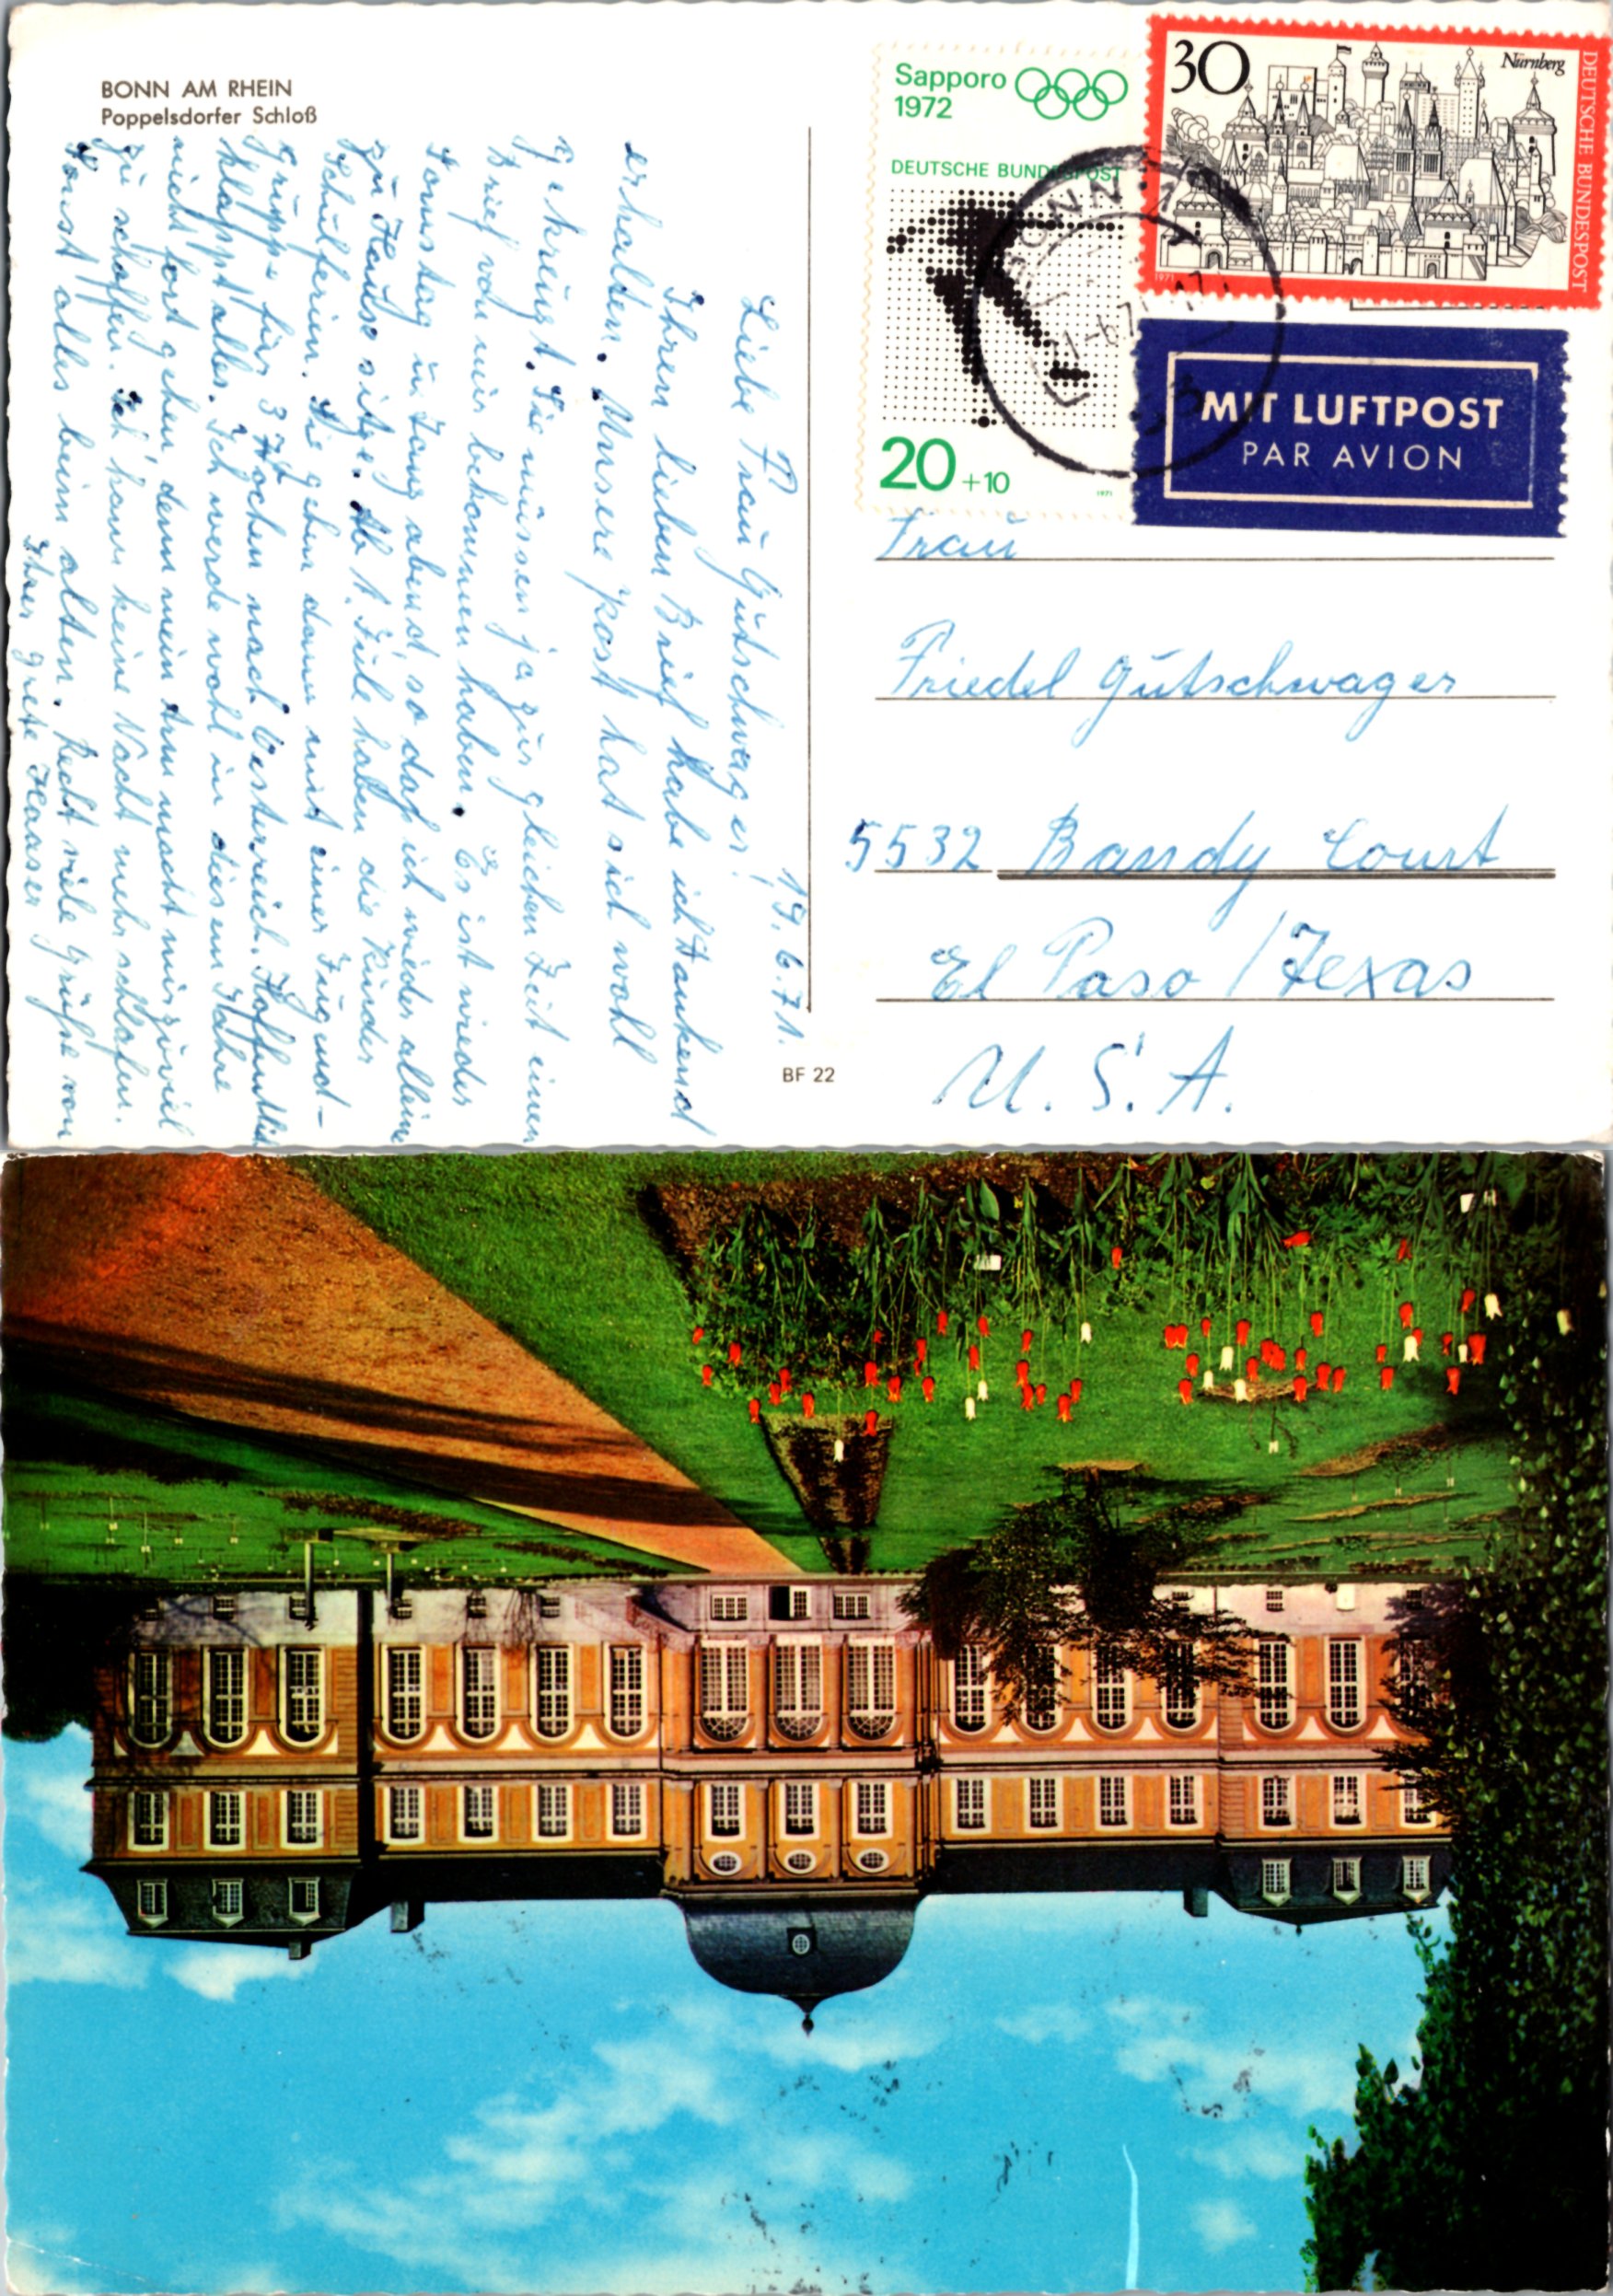 BONN AM RHEIN
Poppelsdorfer Schloß
19.6.71.
Liebe Frau Gutschwager!
Ihren lieben Brief habe ich dankend
erhalten. Unsere Post hat sich wohl
gekreuzt. Sie müssen ja zur gleichen Zeit einen
Brief von mir bekommen haben. Es ist wieder
Sonnstag abend, so daß ich wieder alleine
zu Hause sitze. Ab 1. Juli haben die Kinder
Schulferien. Sie gehen dann mit einer Jugend-
gruppe für 3 Wochen nach Oesterreich. Hoffentlich
klappt alles. Ich werde wohl in diesem Jahre
nicht fort gehen, denn mein Arm macht mir zuviel
zu schaffen. Ich kann keine Nacht mehr schlafen.
Sonst alles beim alten. Recht viele Grüße von
Ihrer Grete Haaser
BF 22
Sapporo
1972
DEUTSCHE BUNDESPOST
20 +10
1971
30
Nürnberg
DEUTSCHE BUNDESPOST
1971
BONN
MIT LUFTPOST
PAR AVION
Frau
Friedel Gutschwager
5532 Bandy Court
El Paso / Texas
U. S. A.